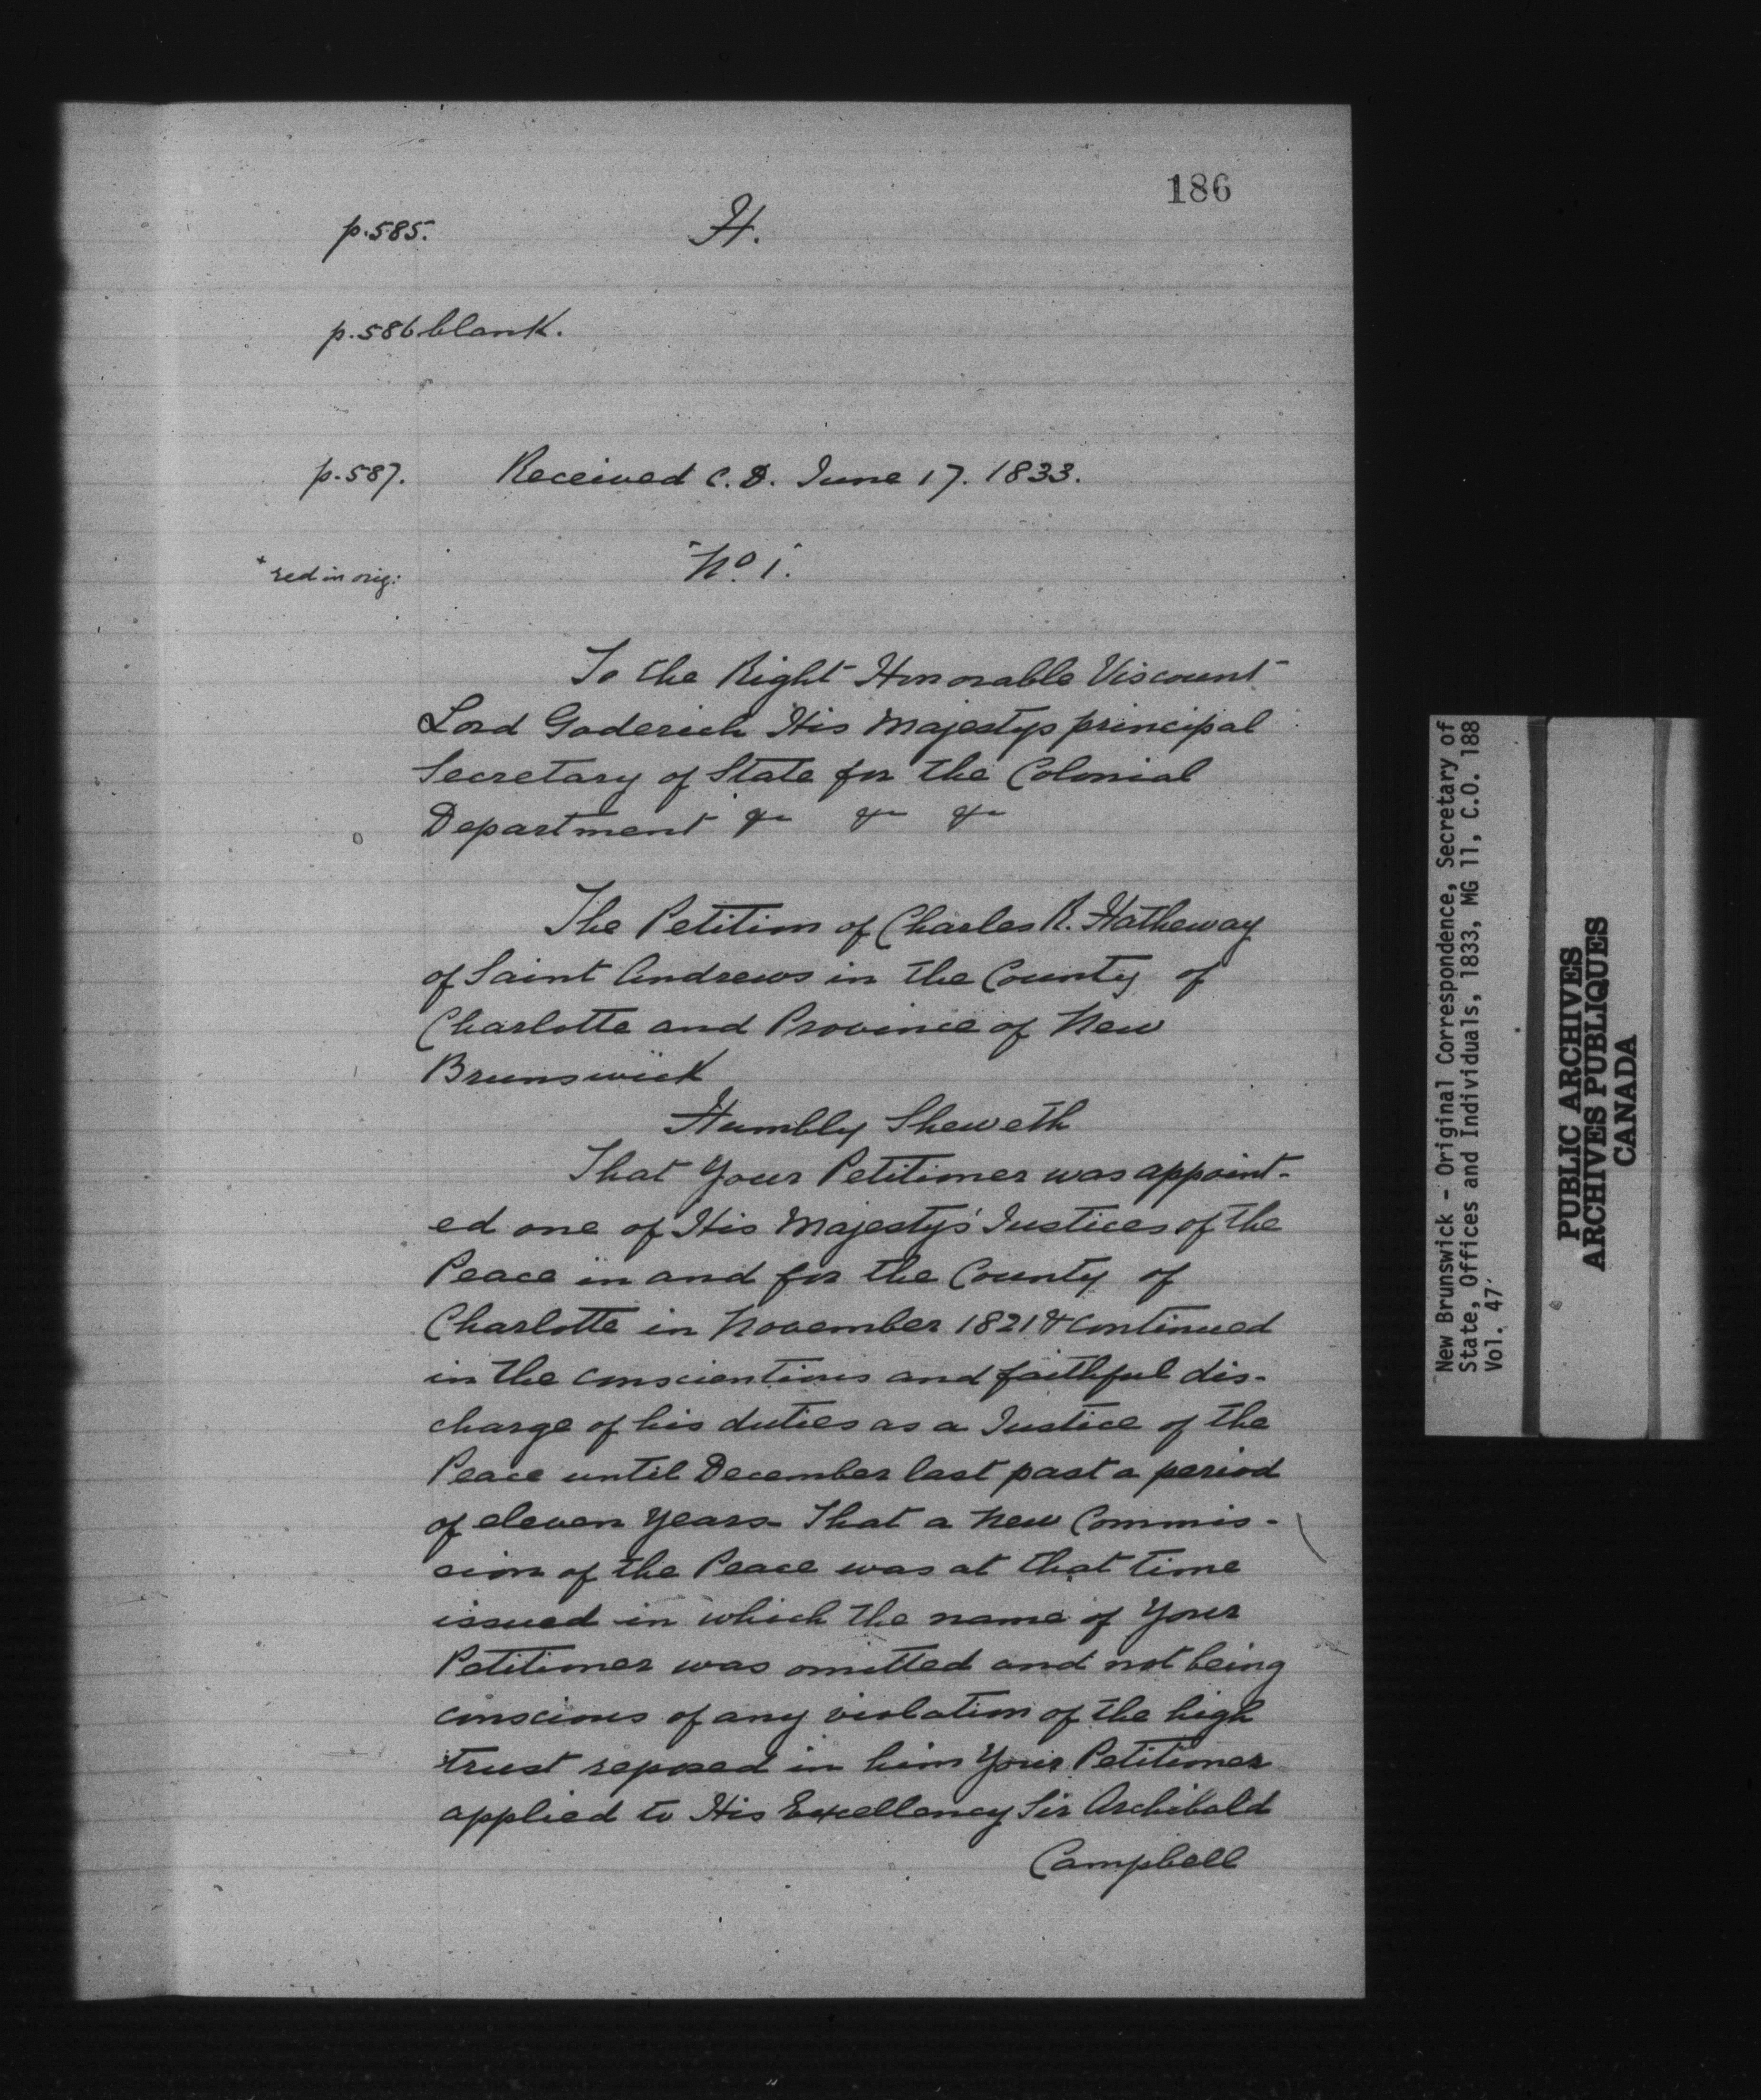 186
p.585. H.
p.586 blank.
p.587. Received C.D. June 17. 1833.
+ red in orig: "No 1."
To the Right Honorable Viscount
Lord Goderich His Majestys principal
Secretary of State for the Colonial
Department &c &c &c
The Petition of Charles R. Hatheway
of Saint Andrews in the County of
Charlotte and Province of New
Brunswick
Humbly Sheweth
That Your Petitioner was appoint-
ed one of His Majesty's Justices of the
Peace in and for the County of
Charlotte in November 1821 & continued
in the conscientious and faithful dis-
charge of his duties as a Justice of the
Peace until December last past a period
of eleven Years - That a New Commis-
sion of the Peace was at that time
issued in which the name of Your
Petitioner was omitted and not being
conscious of any violation of the high
trust reposed in him Your Petitioner
applied to His Excellency Sir Archibald
Campbell
New Brunswick - Original Correspondence, Secretary of
State, Offices and Individuals, 1833, MG 11, C.O. 188
Vol. 47
PUBLIC ARCHIVES
ARCHIVES PUBLIQUES
CANADA